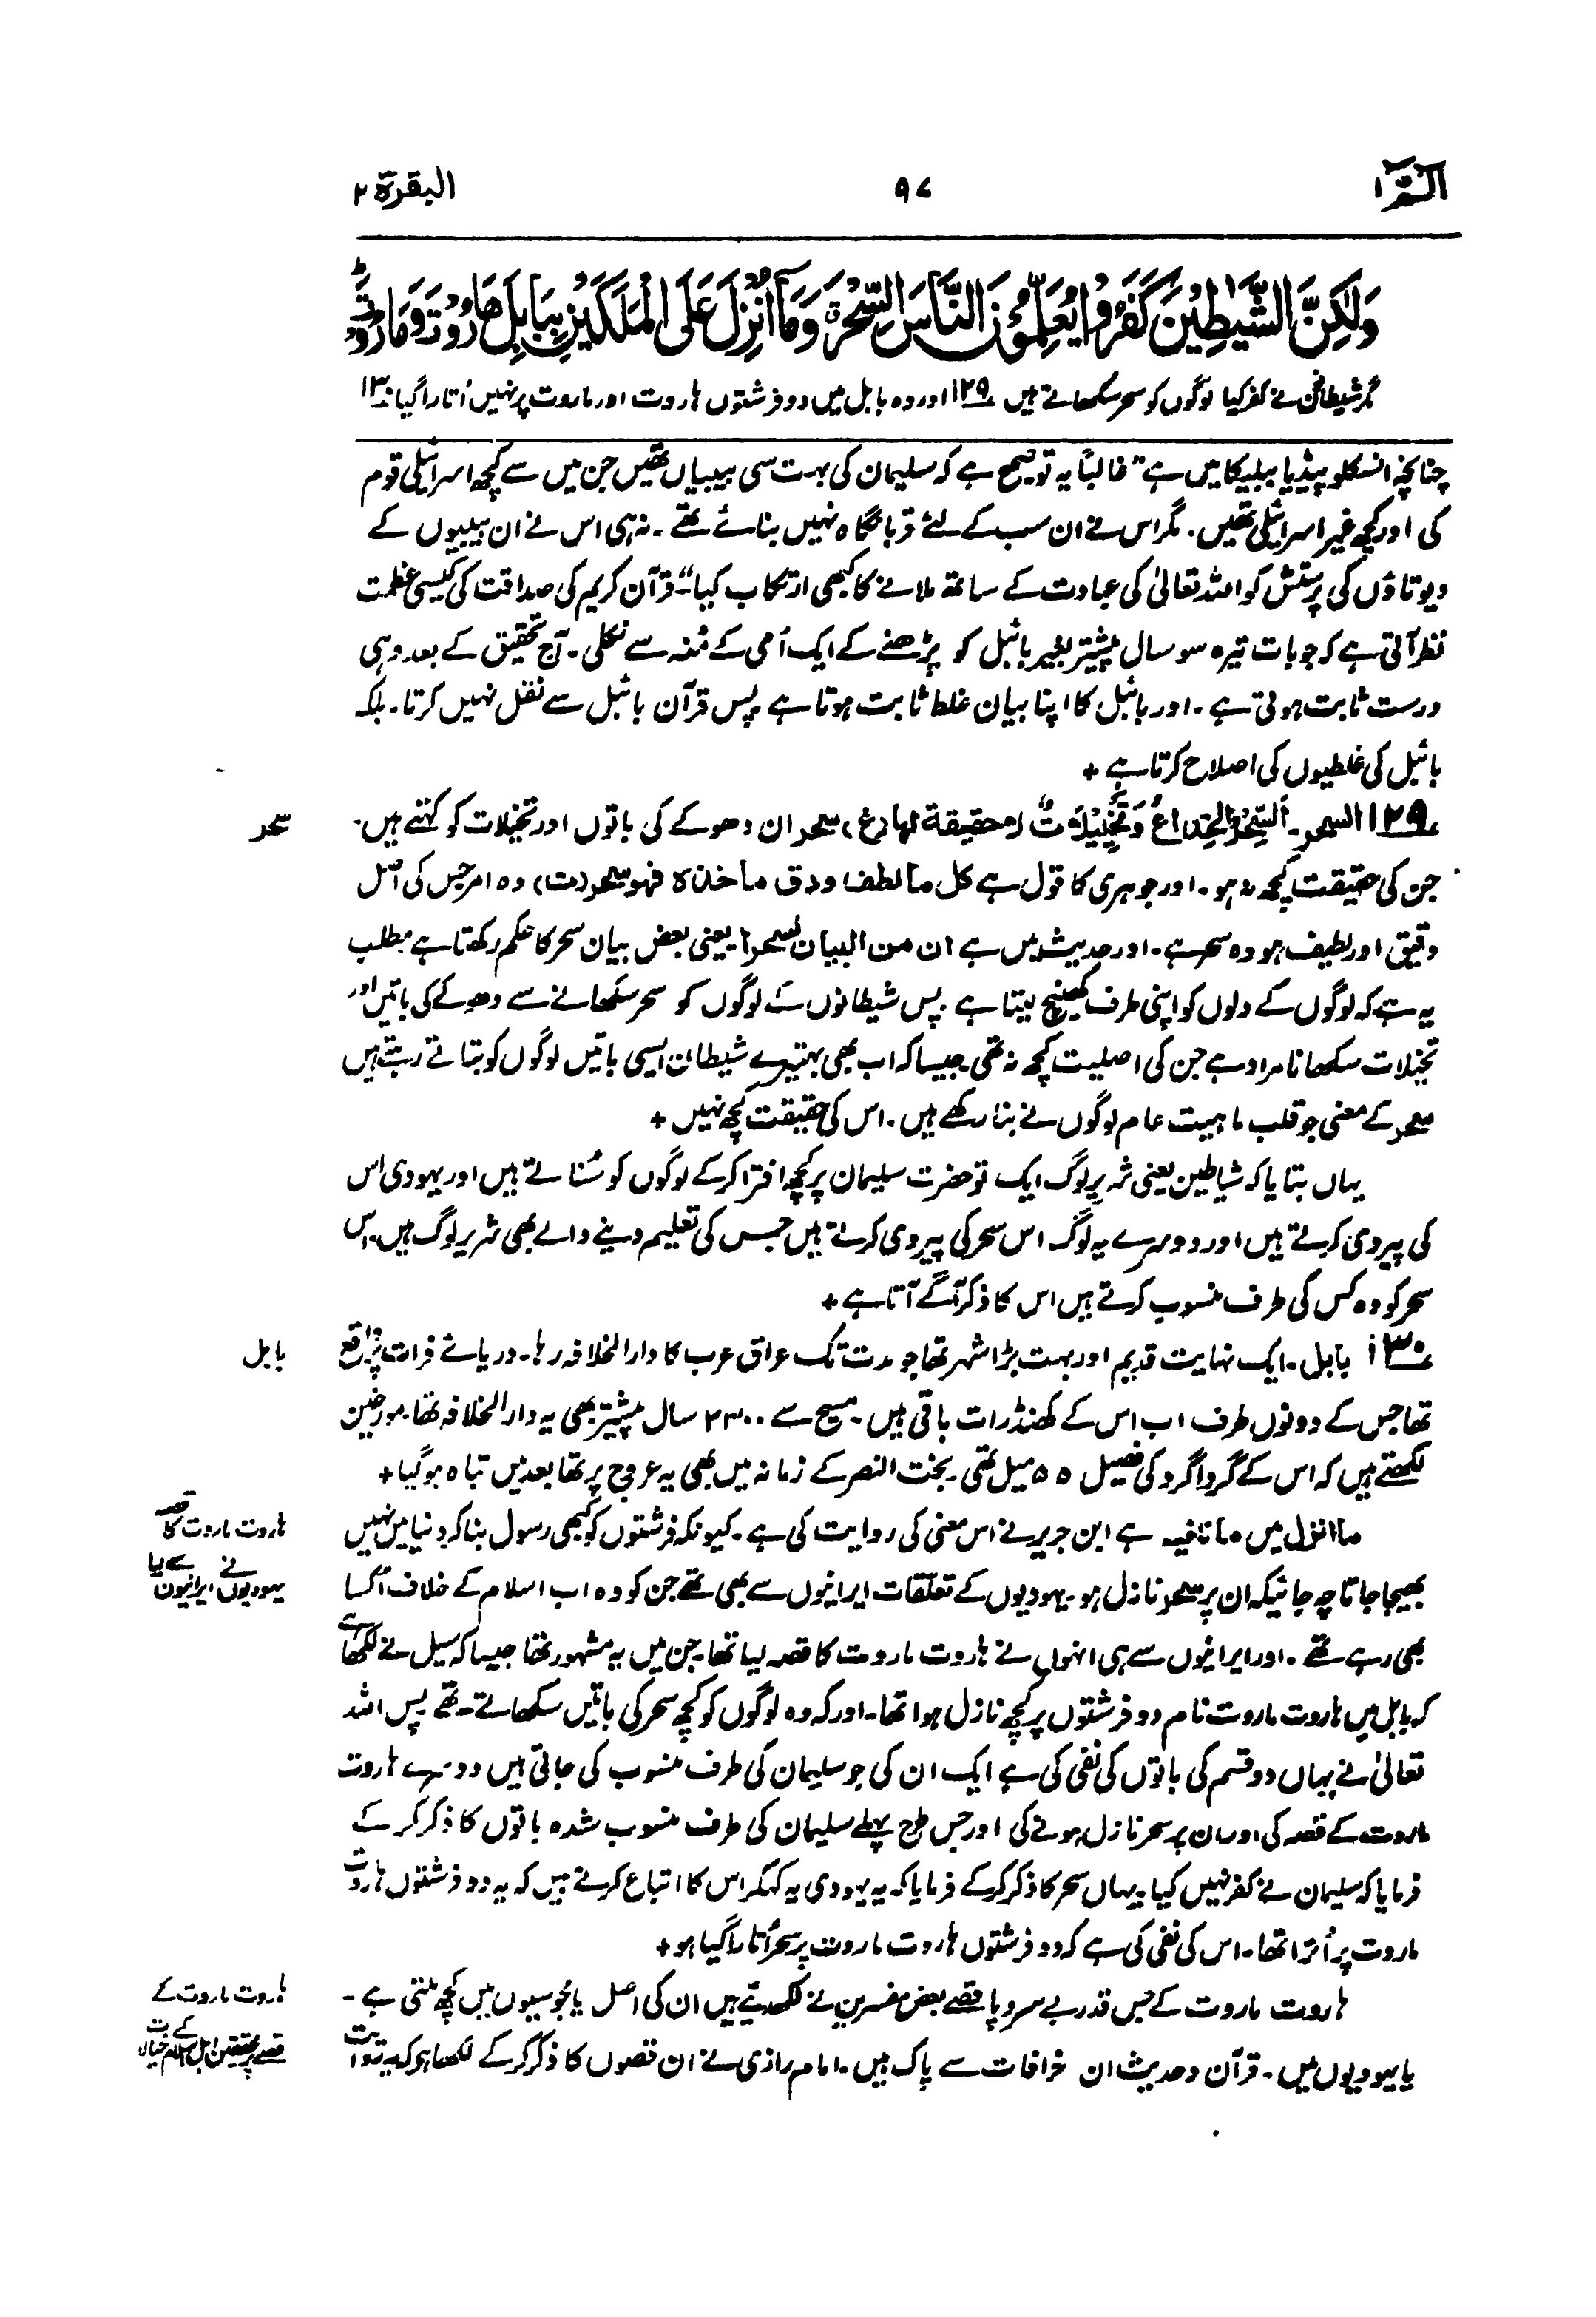 الٓمّٓ ۱
۹۷
البقرة ۲
وَلٰكِنَّ الشَّيٰطِيْنَ كَفَرُوْا يُعَلِّمُوْنَ النَّاسَ السِّحْرَ وَمَآ اُنْزِلَ عَلَى الْمَلَكَيْنِ بِبَابِلَ هَارُوْتَ وَمَارُوْتَ
مگر شیطانوں نے کفر کیا لوگوں کو سحر سکھاتے ہیں ۱۲۹ اور وہ بابل میں دو فرشتوں ہاروت اور ماروت پر نہیں اُتارا گیا ۱۳۰
چنانچہ انسکلوپیڈیا ببلیکا میں ہے "غالباً یہ تو صحیح ہے کہ سلیمان کی بہت سی بیبیاں تھیں جن میں سے کچھ اسرائیلی قوم
کی اور کچھ غیر اسرائیلی تھیں۔ مگر اس نے ان سب کے لئے قربانگاہ نہیں بنائے تھے۔ نہ ہی اس نے ان بیبیوں کے
دیوتاؤں کی پرستش کو اللہ تعالیٰ کی عبادت کے ساتھ ملانے کا کبھی ارتکاب کیا"۔ قرآن کریم کی صداقت کی کیسی عظمت
نظر آتی ہے کہ جو بات تیرہ سو سال پیشتر بغیر بائبل کو پڑھنے کے ایک اُمی کے مُنہ سے نکلی۔ آج تحقیق کے بعد وہی
درست ثابت ہوتی ہے۔ اور بائبل کا اپنا بیان غلط ثابت ہوتا ہے پس قرآن بائبل سے نقل نہیں کرتا۔ بلکہ
بائبل کی غلطیوں کی اصلاح کرتا ہے +
۱۲۹ السحر۔ اَلسِّحْرُ الخِدَاعُ وَتَخْيِيْلَاتٌ لا حقيقة لها (غ) سحر ان دھوکے کی باتوں اور تخیلات کو کہتے ہیں۔
سحر
جن کی حقیقت کچھ نہ ہو۔ اور جوہری کا قول ہے كل ما لطف ودق ماخذه فهو سحر (ت) وہ امر جس کی اصل
دقیق اور لطیف ہو وہ سحر ہے۔ اور حدیث میں ہے ان من البيان لسحرا یعنی بعض بیان سحر کا حکم رکھتا ہے مطلب
یہ ہے کہ لوگوں کے دلوں کو اپنی طرف کھینچ لیتا ہے۔ پس شیطانوں کے لوگوں کو سحر سکھانے سے دھوکے کی باتیں اور
تخیلات سکھانا مراد ہے جن کی اصلیت کچھ نہ تھی جیسا کہ اب بھی بہتیرے شیطان ایسی باتیں لوگوں کو بتاتے رہتے ہیں
سحر کے معنی جو قلب ماہیت عام لوگوں نے بنا رکھے ہیں۔ اس کی حقیقت کچھ نہیں +
یہاں بتایا کہ شیاطین یعنی شریر لوگ ایک تو حضرت سلیمان پر کچھ افترا کر کے لوگوں کو سُناتے ہیں اور یہودی اس
کی پیروی کرتے ہیں اور دوسرے یہ لوگ اس سحر کی پیروی کرتے ہیں جس کی تعلیم دینے والے بھی شریر لوگ ہیں۔ اس
سحر کو وہ کس کی طرف منسوب کرتے ہیں اس کا ذکر آگے آتا ہے +
۱۳۰ بابل۔ ایک نہایت قدیم اور بہت بڑا شہر تھا جو مدت تک عراق عرب کا دارالخلافہ رہا۔ دریائے فرات پر واقع
بابل
تھا جس کے دونوں طرف اب اس کے کھنڈرات باقی ہیں۔ مسیح سے ۲۳۰۰ سال پیشتر بھی یہ دارالخلافہ تھا۔ مورخین
لکھتے ہیں کہ اس کے گرداگرد کی فصیل ۵۵ میل تھی۔ بخت النصر کے زمانہ میں بھی یہ عروج پر تھا بعد میں تباہ ہو گیا +
ما انزل میں ما نافیہ ہے ابن جریر نے اس معنی کی روایت کی ہے۔ کیونکہ فرشتوں کو کبھی رسول بنا کر دنیا میں نہیں
ہاروت ماروت کا قصہ
بھیجا جاتا چہ جائیکہ ان پر سحر نازل ہو۔ یہودیوں کے تعلقات ایرانیوں سے بھی تھے جن کو وہ اب اسلام کے خلاف اُکسا
یہودیوں نے ایرانیوں سے لیا
بھی رہے تھے۔ اور ایرانیوں سے ہی انہوں نے ہاروت ماروت کا قصہ لیا تھا۔ جن میں یہ مشہور تھا جیسا کہ سیل نے لکھا ہے
کہ بابل میں ہاروت ماروت نام دو فرشتوں پر کچھ نازل ہوا تھا۔ اور کہ وہ لوگوں کو کچھ سحر کی باتیں سکھاتے تھے۔ پس اللہ
تعالیٰ نے یہاں دو قسم کی باتوں کی نفی کی ہے ایک ان کی جو سلیمان کی طرف منسوب کی جاتی ہیں دوسرے ہاروت
ماروت کے قصہ کی اور ان پر سحر نازل ہونے کی اور جس طرح پہلے سلیمان کی طرف منسوب شدہ باتوں کا ذکر کر کے
فرمایا کہ سلیمان نے کفر نہیں کیا۔ یہاں سحر کا ذکر کر کے فرمایا کہ یہ یہودی یہ کہکر اس کا اتباع کرتے ہیں کہ یہ دو فرشتوں ہاروت
ماروت پر اُترا تھا۔ اس کی نفی کی ہے کہ دو فرشتوں ہاروت ماروت پر سحر اُتارا گیا ہو +
ہاروت ماروت کے جس قدر بے سروپا قصے بعض مفسرین نے لکھدیئے ہیں ان کی اصل یا مجوسیوں میں کچھ ملتی ہے۔
ہاروت ماروت کے
یا یہودیوں میں۔ قرآن و حدیث ان خرافات سے پاک ہیں۔ امام رازی نے ان قصوں کا ذکر کر کے لکھا ہے کہ یہ روایت
قصے پر محققین اہل اسلام کے خیالات